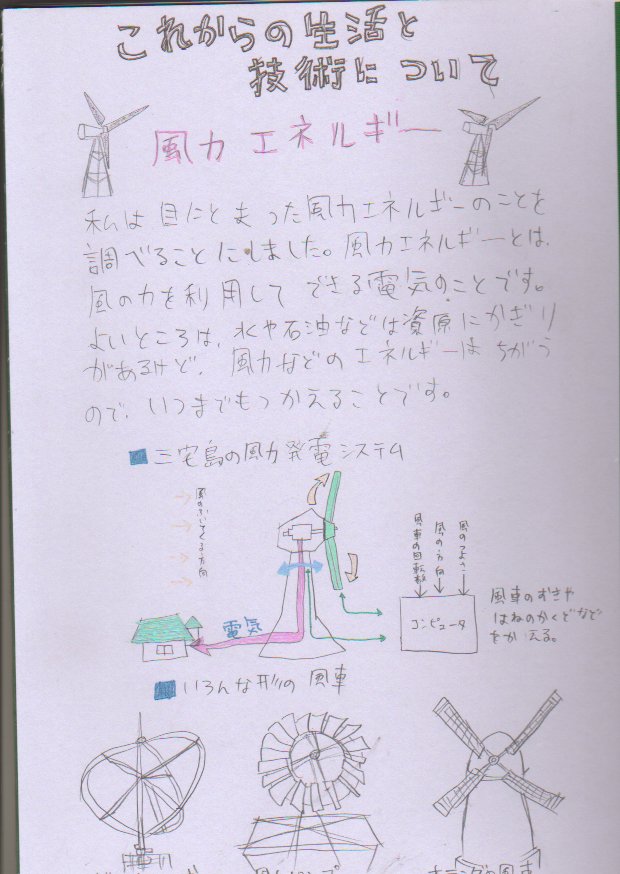 これからの生活と
技術について
風力エネルギー
私は目にとまった風力エネルギーのことを
調べることにしました。風力エネルギーとは、
風の力を利用してできる電気のことです。
よいところは、水や石油などは資原にかぎり
があるけど、風力などのエネルギーはちがう
ので、いつまでもつかえることです。
三宅島の風力発電システム
風のふいてくる方向
風車の回転数
風の方向
風の強さ
電気
コンピュータ
風車のむきや
はねのかくどなど
をかえる。
いろんな形の風車
オランダの風車